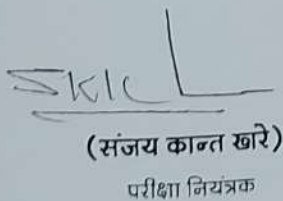 (संजय कान्त खरे)
परीक्षा नियंत्रक